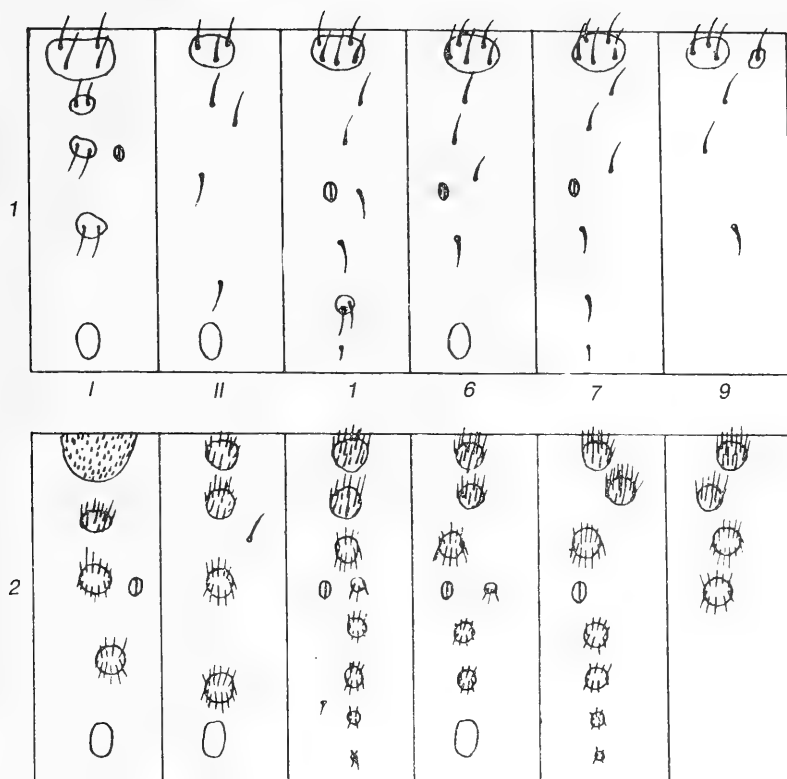 1
I II 1 6 7 9
2